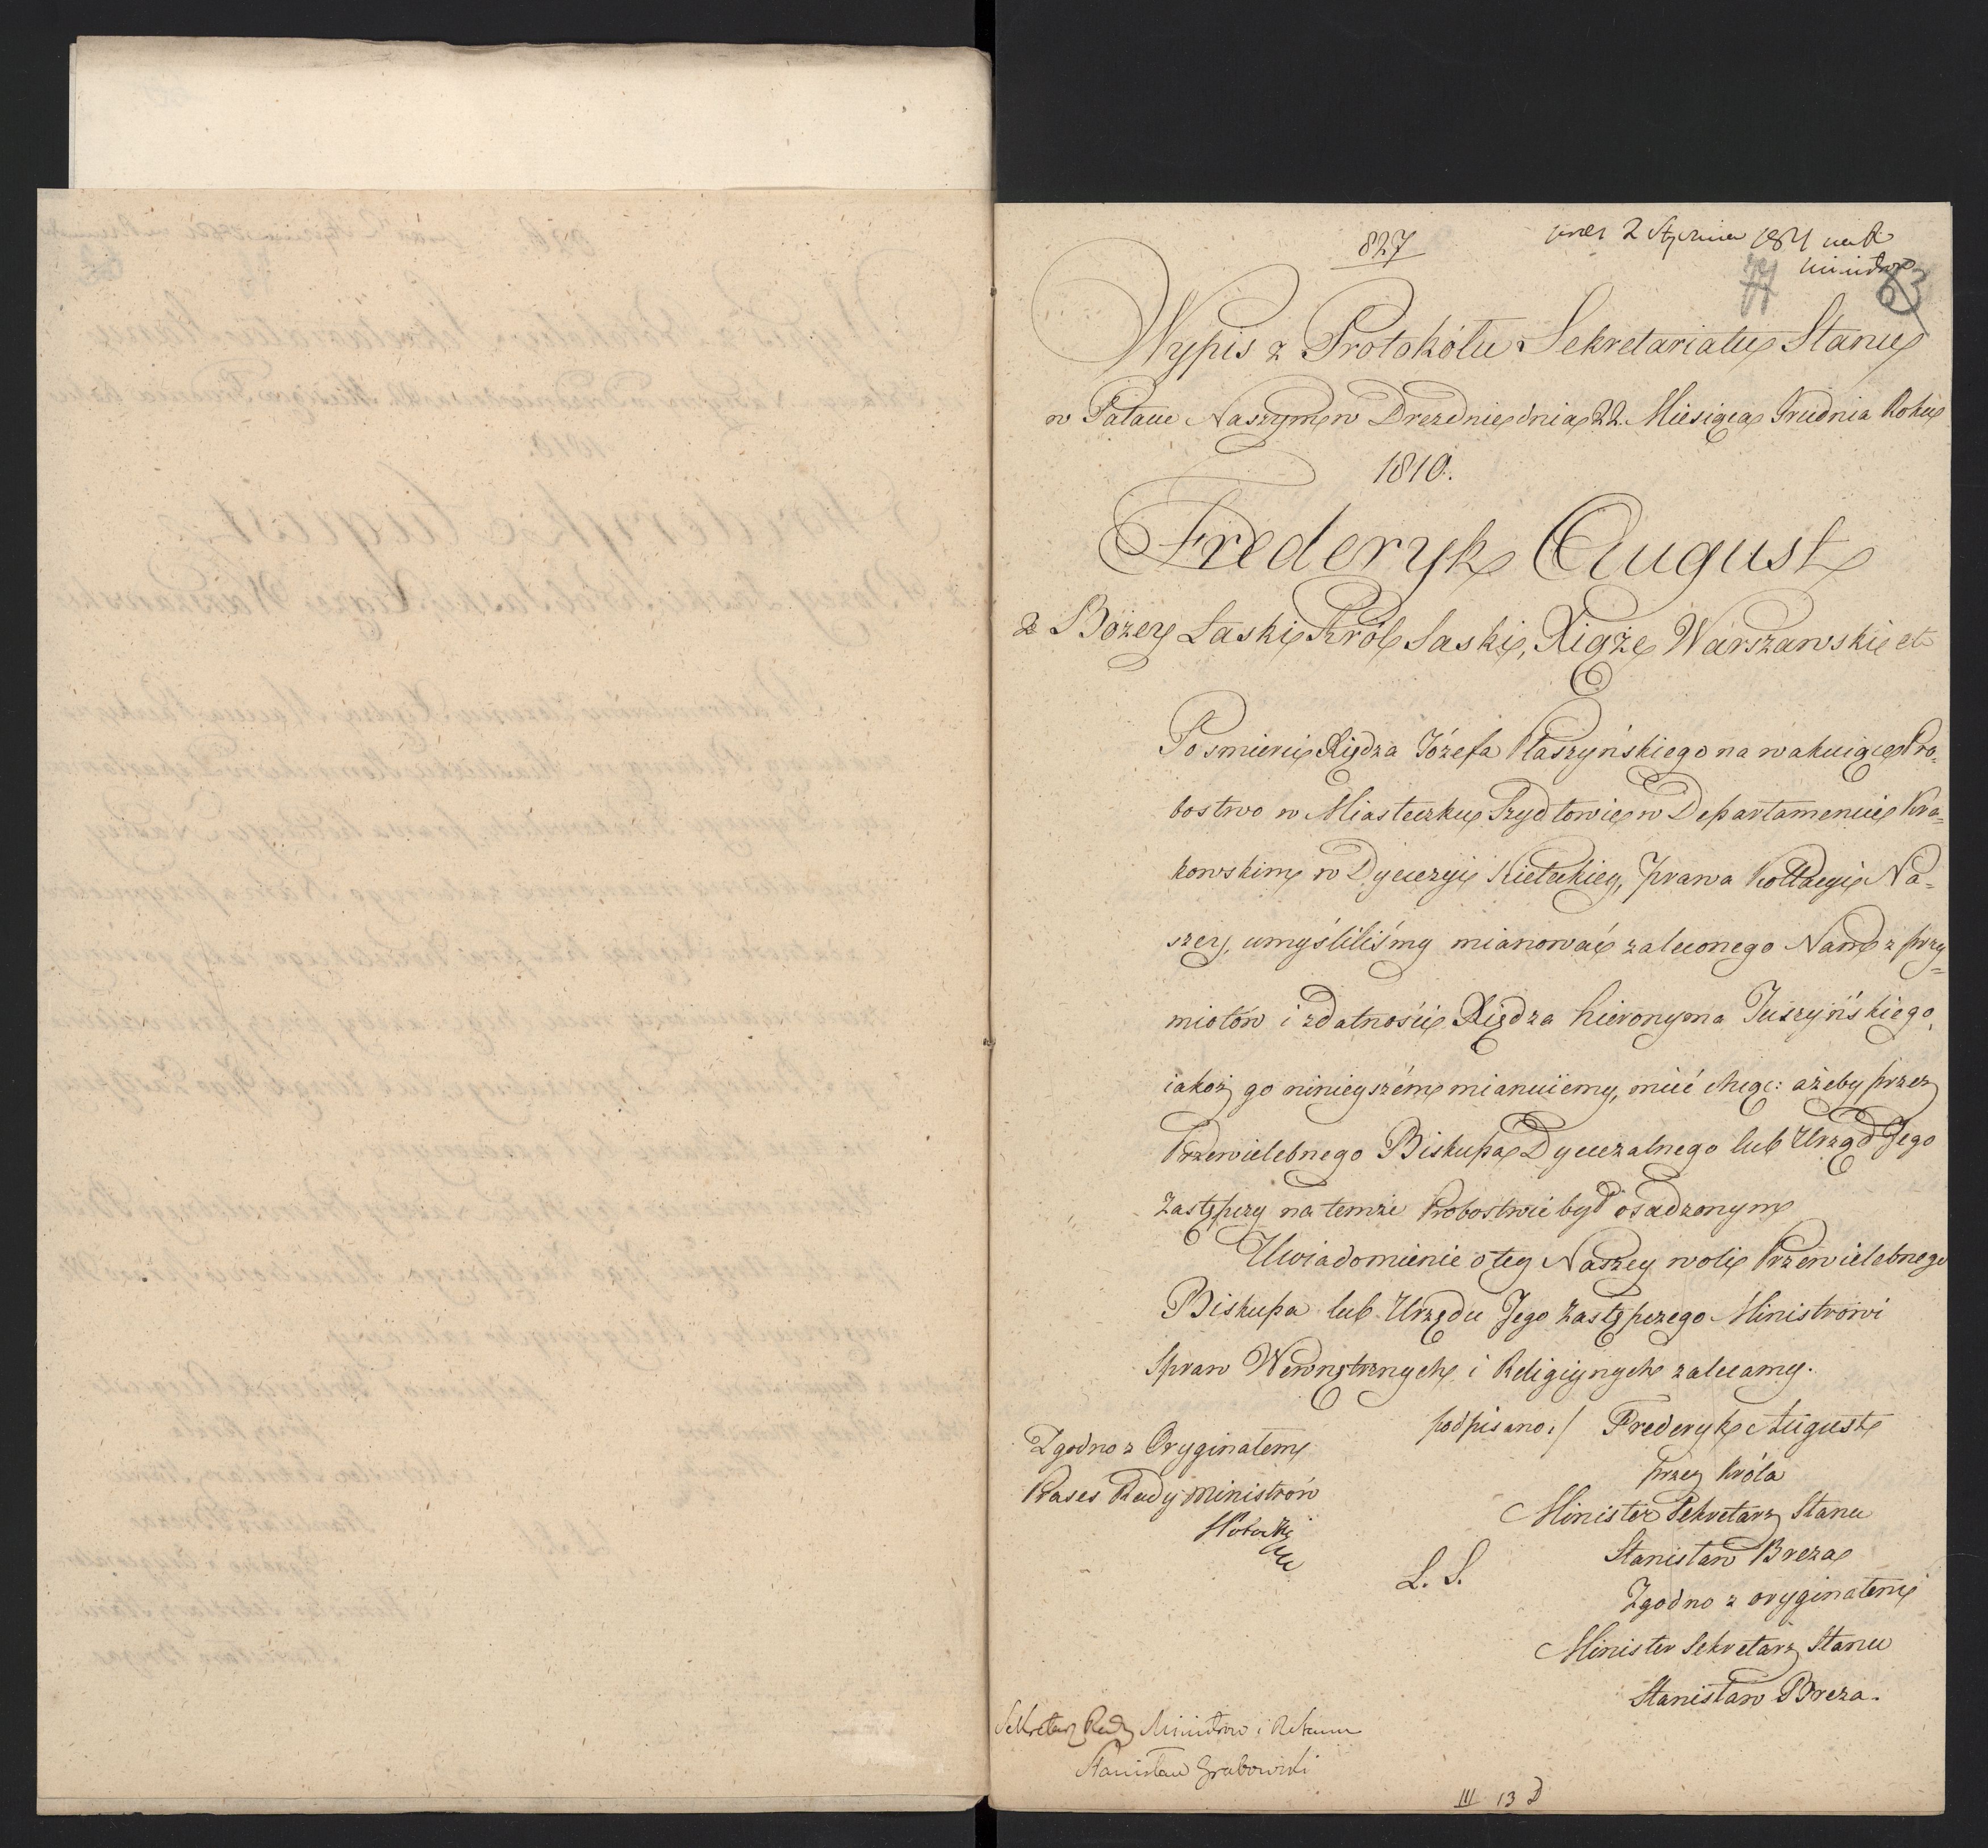 827
2 Stycznia 1811
77
63
Wypis z Protokółu Sekretariatu Stanu
w Pałacu Naszym w Dreznie dnia 22. Miesiąca Grudnia Roku
1810.
Frederyk August
z Bożey Łaski Król Saski, Xiążę Warszawski etc
Po śmierci Xiędza Józefa Ptaszyńskiego na wakuiące Pro=
bostwo w Miasteczku Szydłowie w Departamencie Kra=
kowskim w Dyecezyi Kieleckiey, prawa Kollacyi Na=
szey, umyśliliśmy mianować zaleconego Nam z przy=
miotów i zdatności Xiędza Hieronyma Juszyńskiego,
iakoż go ninieyszém mianuiemy, mieć chcąc: ażeby przez
Przewielebnego Biskupa Dyecezalnego lub Urząd Jego
Zastępczy na temże Probostwie był osadzonym
Uwiadomienie o tey Naszey woli Przewielebnego
Biskupa lub Urzędu Jego Zastępczego Ministrowi
Spraw Wewnętrznych i Religiynych zalecamy.
podpisano:/ Frederyk August
przez Króla
Minister Sekretarz Stanu
Stanisław Breza
Zgodno z oryginałem
Minister Sekretarz Stanu
Stanisław Breza.
L. S.
Zgodno z Oryginałem
Prases Rady Ministrów
Sekretarz Rady Ministrów i
Stanisław Grabowski
III 13 D